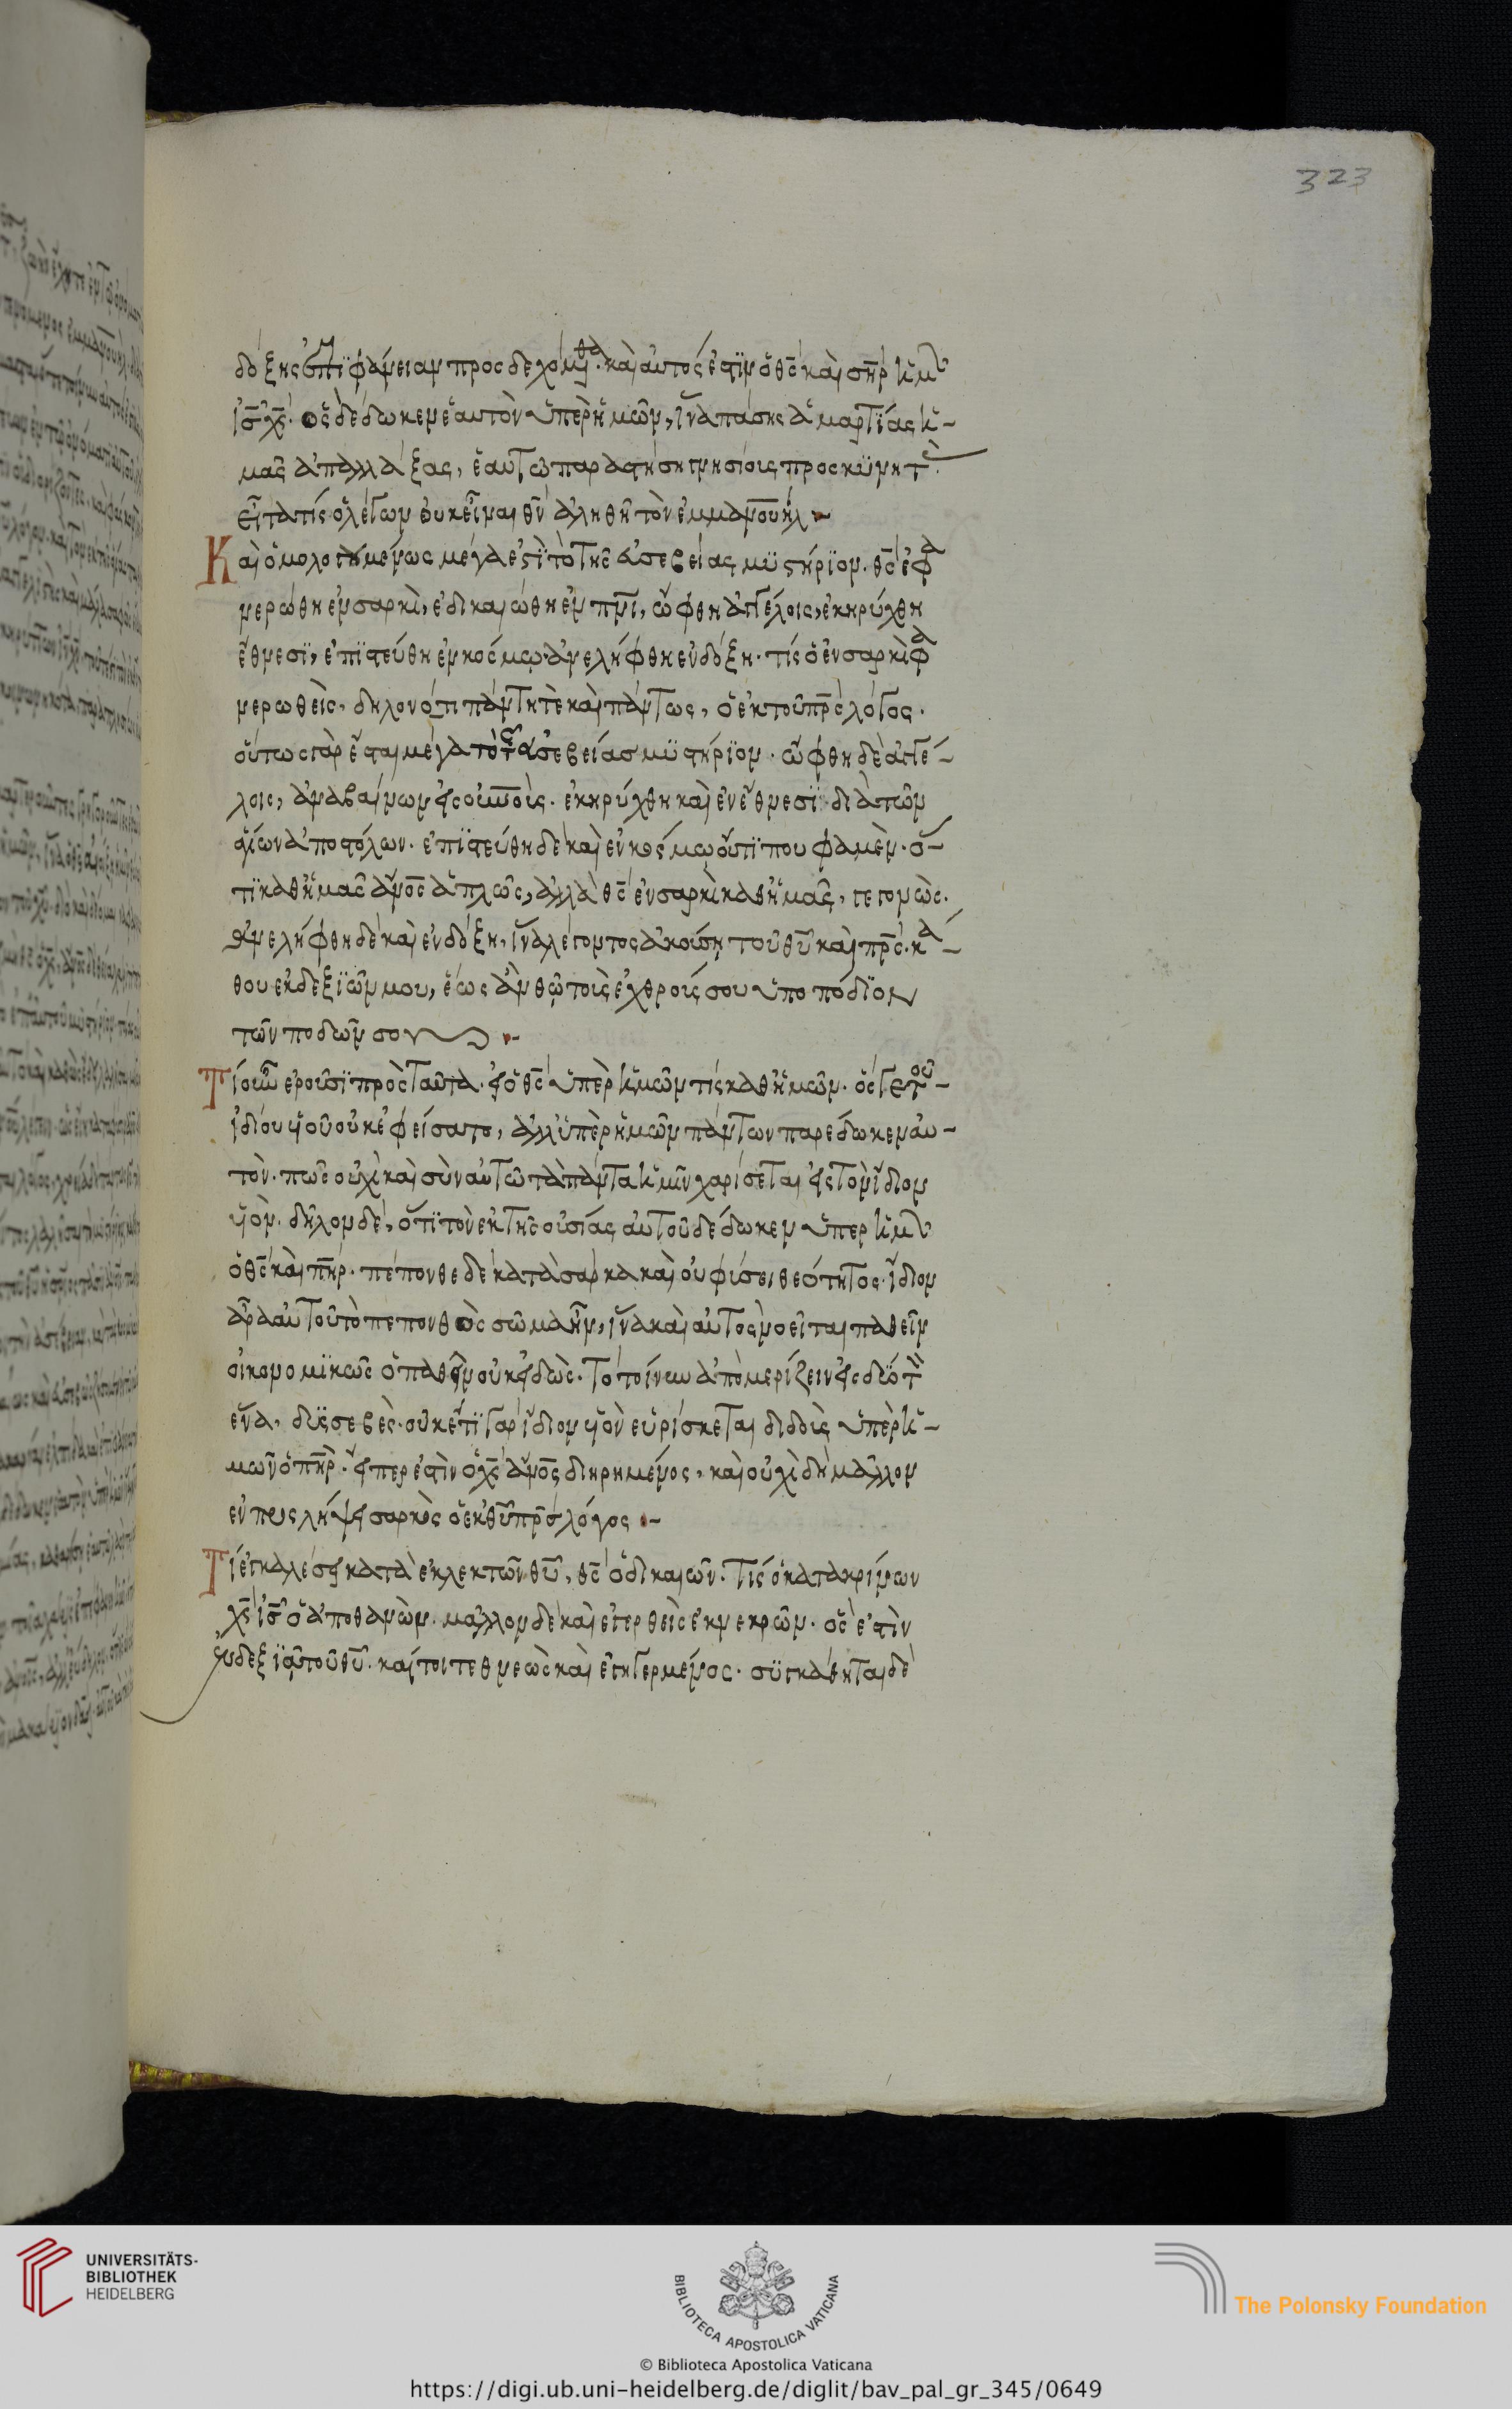 323
δόξης ἐπιφάνειαν προσδεχόμεθα· καὶ αὐτός ἐστιν ὁ θς̄ καὶ σηρ̄ ἡμῶν
ις̄ χς̄· ὃς δέδωκεν ἑαυτὸν ὑπὲρ ἡμῶν, ἵνα πάσης ἁμαρτίας ἡ-
μᾶς ἀπαλλάξας, ἑαυτῶ παραστήση γνησίοις προσκϋνητ
εἶτα τίς ὁ λέγων οὐκ εἶναι θν̄ ἀληθῆ τὸν ἐμμανουήλ
Καὶ ὁμολογουμένως μέγα ἐστῒ τὸ τῆς εὐσεβείας μϋστήρϊον. θς̄ ἐφα
νερώθη ἐν σαρκὶ, ἐδικαιώθη ἐν πνῑ, ὤφθη ἀγγέλοις, ἐκηρύχθη
ἔθνεσϊ, ἐπϊστεύθη ἐν κόσμω· ἀνελήφθη ἐν δόξη· τίς ὁ ἐν σαρκὶ φα
νερωθεὶς, δῆλον ὅτι πάντη τὲ καὶ πάντως, ὁ ἐκ τοῦ πρς̄ λόγος.
οὕτως γὰρ ἔσται μέγα τὸ τῆς εὐσεβείας μϋστήρϊον· ὤφθη δὲ ἀγγέ-
λοις, ἀναβαίνων εἰς οὐνοὺς. ἐκηρύχθη καὶ ἐν ἔθνεσϊ διὰ τῶν
ἁγίων ἀποστόλων· ἐπϊστεύθη δὲ καὶ ἐν κόσμω οὔτϊ που φαμὲν· ὅ-
τϊ καθ ἡμᾶς ἀνος̄ ἁπλῶς, ἀλλὰ θς̄ ἐν σαρκὶ καθ ἡμᾶς, γεγονὼς.
ἀνελήφθη δὲ καὶ ἐν δόξη, ἵνα λέγοντος ἀκούση τοῦ θῡ καὶ πρς̄· κά-
θου ἐκ δεξϊῶν μου, ἕως ἂν θῶ τοὺς ἐχθρούς σου ὑποπόδϊον
τῶν ποδῶν σου
Τί οὖν ἐροῦσϊ πρὸς ταῦτα· εἰ ὁ θς̄ ὑπὲρ ἡμῶν τίς καθ ἡμῶν· ὅς γε τοῦ
ἰδίου υἱοῦ οὐκ ἐφείσατο, ἀλλ ὑπὲρ ἡμῶν πάντων παρέδωκεν αὐ-
τὸν· πῶς οὐχὶ καὶ σὺν αὐτῶ τὰ πάντα ἡμῖν χαρίσεται εἰς τὸν ἴδιον
υἱὸν· δῆλον δὲ, ὅτϊ τὸν ἐκ τῆς οὐσίας αὐτοῦ δέδωκεν ὑπὲρ ἡμῶν
ὁ θς̄ καὶ πηρ̄· πέπονθε δὲ κατὰ σάρκα καὶ οὐ φύσει θεότητος· ἴδιον
ἄρα αὐτοῦ τὸ πεπονθὸς σῶμα ἦν, ἵνα καὶ αὐτὸς νοεῖται παθεῖν
οἰκονομϊκῶς ὁ παθεῖν οὐκ εἰδὼς· Τὸ τοίνυν ἀπομερίζειν εἰς δϋὸ τὸν
ἕνα, δυσσεβὲς· οὐκ ἔτϊ γὰρ ἴδιον υἱὸν εὑρίσκεται διδοὺς ὑπὲρ ἡ-
μῶν ὁ πηρ̄· εἴπερ ἐστὶν ὁ χς̄ ἀνος̄ διηρημένος, καὶ οὐχὶ δὴ μᾶλλον
ἐν προσλήψει σαρκὸς ὁ ἐκ θῡ πρς̄ λόγος
Τί ἐγκαλέσει κατὰ ἐκλεκτῶν θῡ, θς̄ ὁ δικαιῶν· τίς ὁ κατακρίνων
χς̄ ις̄ ὁ ἀποθανὼν· μᾶλλον δὲ καὶ ἐγερθεὶς ἐκ νεκρῶν· ὃς ἐστὶν
ἐν δεξϊᾶ τοῦ θῡ· καί τοι τεθνεὼς καὶ ἐγηγερμένος· σϋγκάθηται δὲ
UNIVERSITÄTS-
BIBLIOTHEK
HEIDELBERG
BIBLIOTECA APOSTOLICA VATICANA
The Polonsky Foundation
© Biblioteca Apostolica Vaticana
https://digi.ub.uni-heidelberg.de/diglit/bav_pal_gr_345/0649